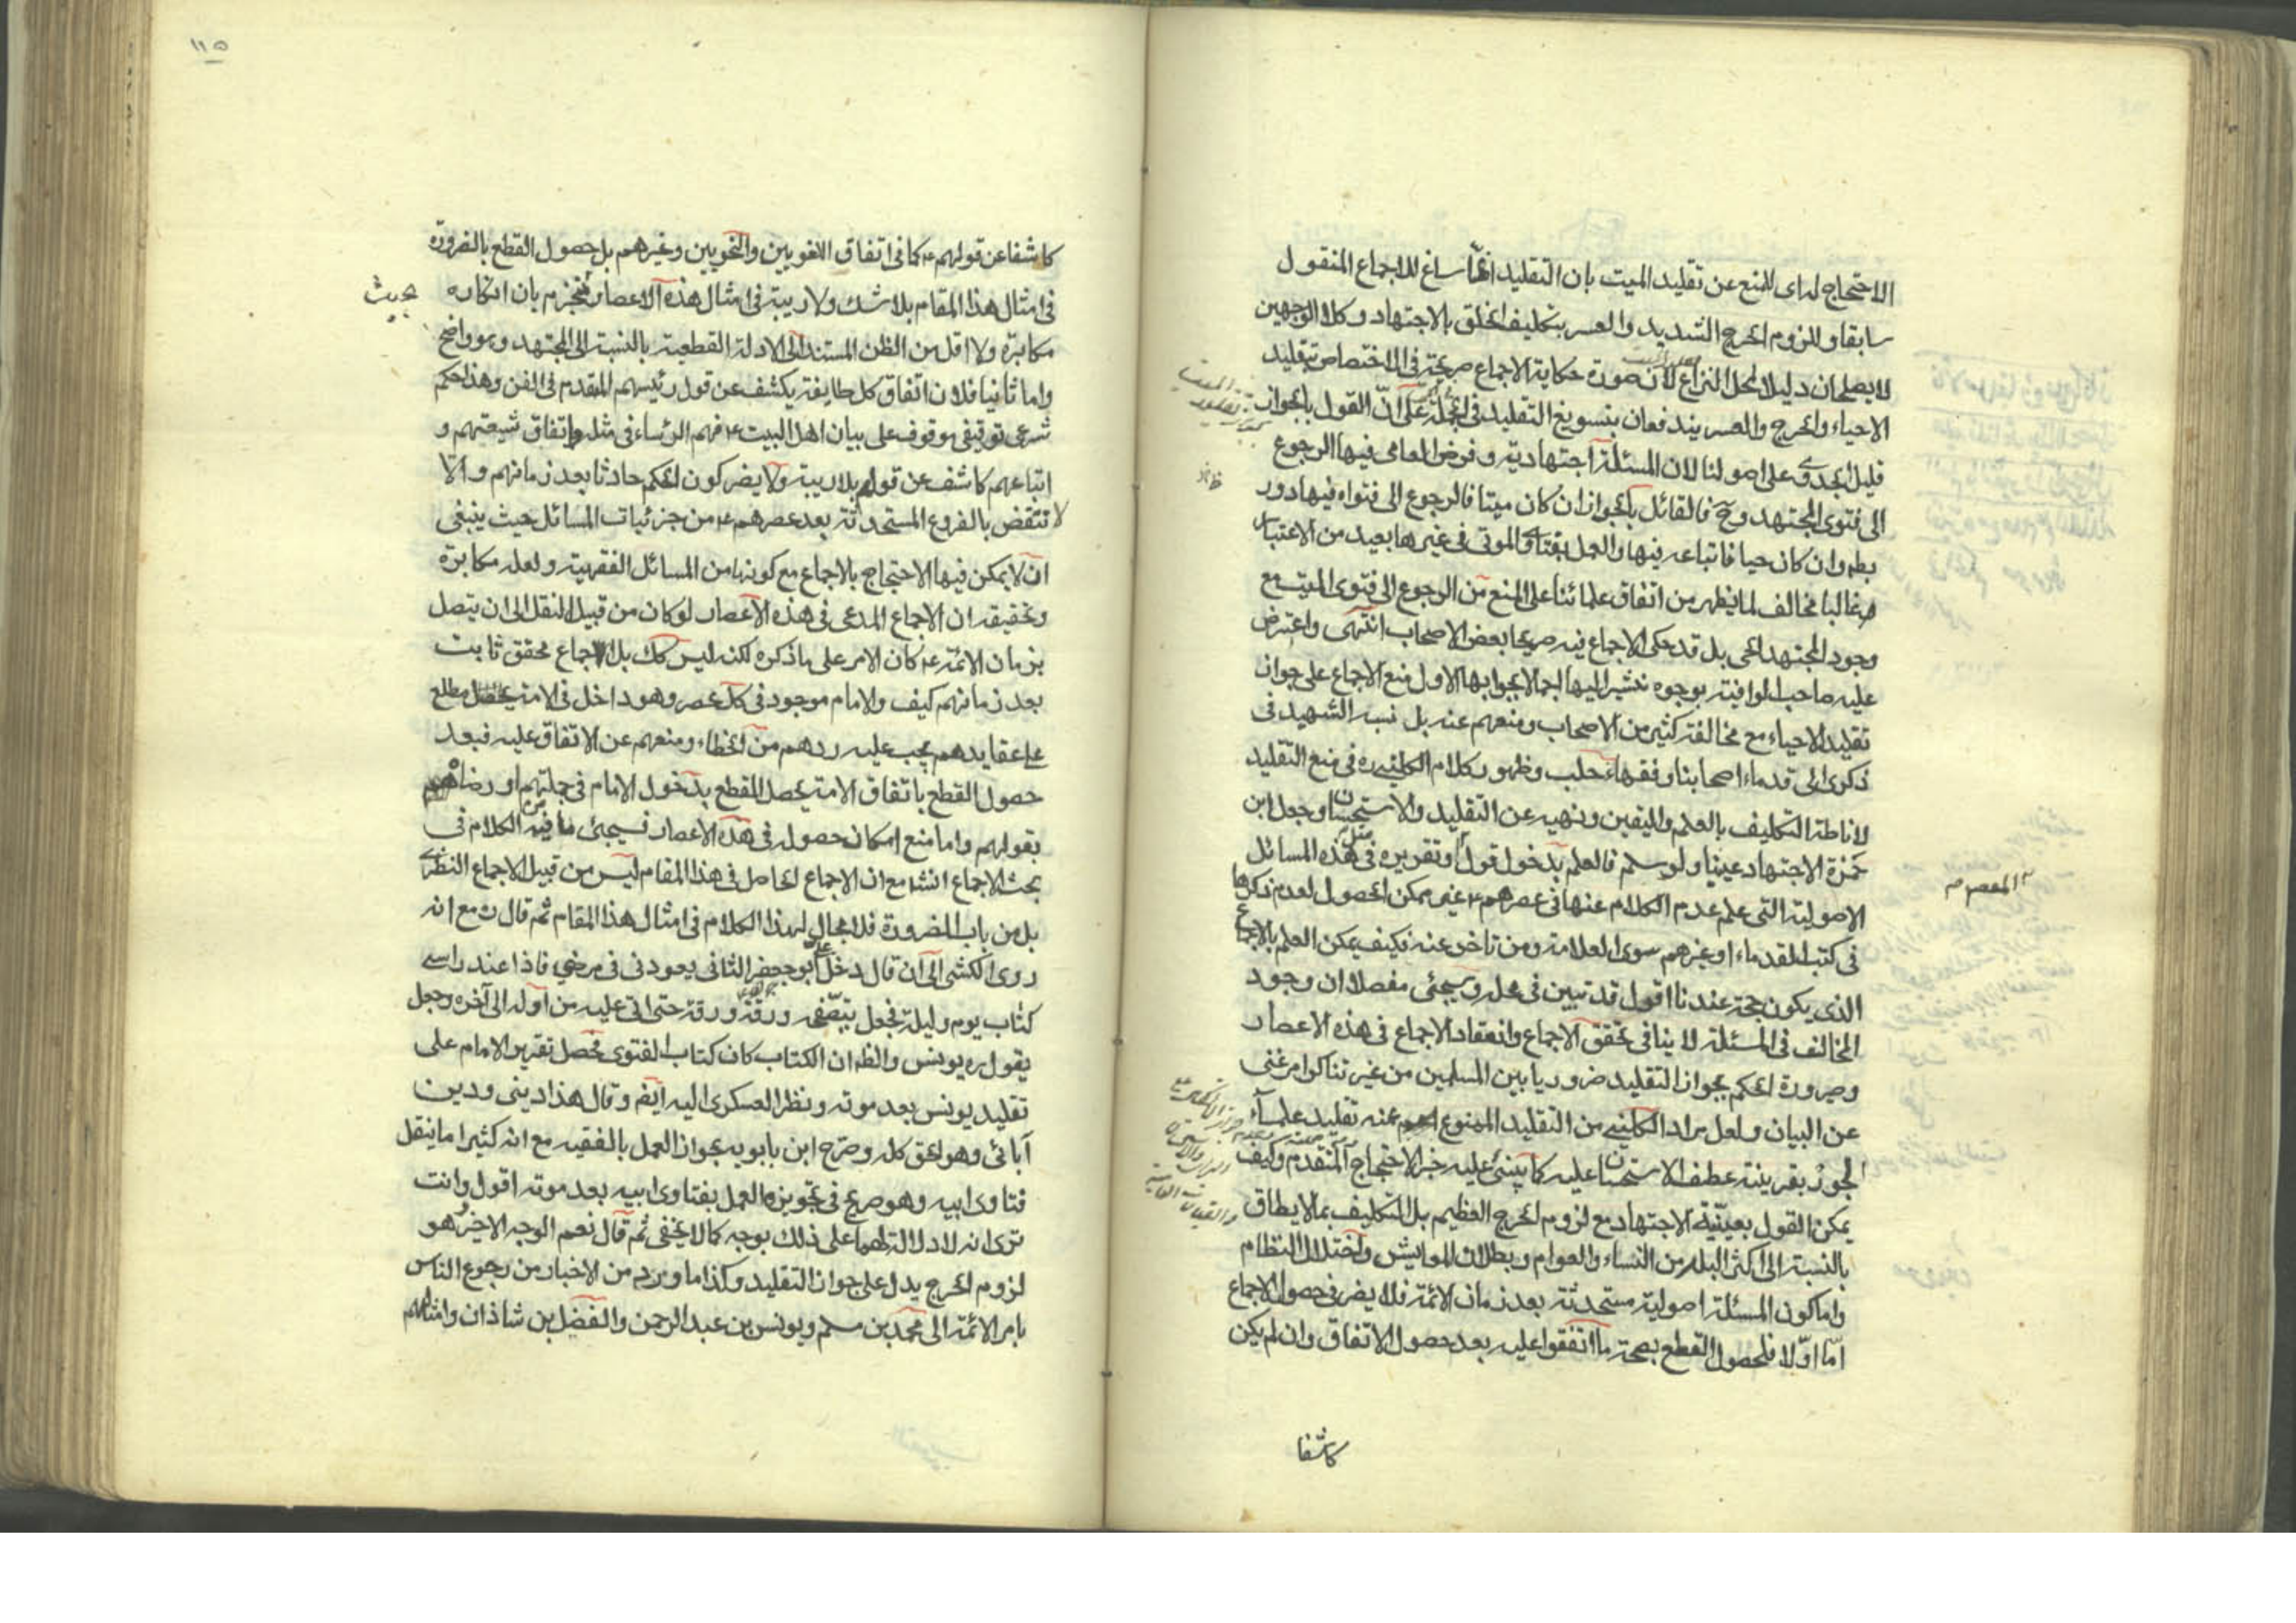 الاحتجاج لراى للمنع عن تقليد الميت بان التقليد انما ساغ للاجماع المنقول
سابقا وللزوم الحرج الشديد والعسر بتكليف الخلق بالاجتهاد وكلا الوجهين
لا يصلحان دليلا لمحل النزاع لان صورة حكاية الاجماع صريحة فى الاختصاص بتقليد
الاحياء والحرج والعسر يندفعان بتسويغ التقليد فى الجملة على ان القول بالجواز
قليل الجدوى على اصولنا لان المسئلة اجتهادية وفرض العامى فيها الرجوع
الى فتوى المجتهد وح فالقائل بالجواز ان كان ميتا فالرجوع الى فتواه فيها دور
ظاهر
وان كان حيا فاتباعه فيها والعمل بفتاوى الموتى فى غيرها بعيد من الاعتبار
غالبا مخالف لما يظهر من اتفاق علمائنا على المنع من الرجوع الى فتوى الميت مع
وجود المجتهد الحى بل قد حكى الاجماع فيه صريحا بعض الاصحاب انتهى واعترض
عليه صاحب الوافية بوجوه نشير اليها اجمالا بجوابها الاول منع الاجماع على جواز
تقليد الاحياء مع مخالفة كثير من الاصحاب ومنعهم عنه بل نسبه الشهيد فى
ذكرى الى قدماء اصحابنا وفقهاء حلب وظهور كلام الكلينى ره فى منع التقليد
لاناطة التكليف بالعلم واليقين ونهيه عن التقليد والاستحسان وجعل ابن
حمزة الاجتهاد عينيا ولو سلم فالعلم بدخول قول وتقريره فى مثل هذه المسائل
المعصوم
الاصولية التى علم عدم الكلام عنها فى عصرهم ع غير ممكن الحصول لعدم ذكرها
فى كتب القدماء او غيرهم سوى العلامة ومن تاخر عنه فكيف يمكن العلم بالاجماع
الذى يكون حجة عندنا اقول قد تبين فى محله وسيجئى مفصلا ان وجود
المخالف فى المسئلة لا ينافى تحقق الاجماع وانعقاد الاجماع فى هذه الاعصار
وصيرورة الحكم بجواز التقليد ضروريا بين المسلمين من غير تناكر امر غنى
عن البيان ولعل مراد الكلينى من التقليد الممنوع عنه تقليد علماء
الجور بقرينة عطف الاستحسان عليه كما ينبئ عليه خبر الاحتجاج المتقدم وكيف
يمكن القول بعينية الاجتهاد مع لزوم الحرج العظيم بل التكليف بما لا يطاق
بالنسبة الى اكثر البله من النساء والعوام وبطلان المعايش واختلال النظام
واما كون المسئلة اصولية مستحدثة بعد زمان الائمة فلا يضر فى حصول الاجماع
اما اولا فلحصول القطع بصحة ما اتفقوا عليه بعد حصول الاتفاق وان لم يكن
كاشفا
١١٥
كاشفا عن قولهم ع كما فى اتفاق اللغويين والنحويين وغيرهم بل حصول القطع بالضرورة
فى امثال هذا المقام بلا شك ولا ريبة فى امثال هذه الاعصار فنجزم بان انكاره
بحيث
مكابرة ولا اقل من الظن المستند الى الادلة القطعية بالنسبة الى المجتهد وهو واضح
واما ثانيا فلان اتفاق كل طايفة يكشف عن قول رئيسهم المقدم فى الفن وهذا حكم
شرعى توقيفى موقوف على بيان اهل البيت ع فهم الرئساء فى مثله واتفاق شيعتهم و
اتباعهم كاشف عن قولهم بلا ريبة ولا يضر كون الحكم حادثا بعد زمانهم والا
لا تنقض بالفروع المستحدثة بعد عصرهم ع من جزئيات المسائل حيث ينبغى
ان لا يمكن فيها الاحتجاج بالاجماع مع كونها من المسائل الفقهية ولعله مكابرة
وتحقيقه ان الاجماع المدعى فى هذه الاعصار لو كان من قبيل النقل الى ان يتصل
بزمان الائمة ع كان الامر على ما ذكره لكنه ليس كك بل الاجماع محقق ثابت
بعد زمانهم كيف والامام موجود فى كل عصر وهو داخل فى الامة مطلع
على عقايدهم يجب عليه ردهم من الخطاء ومنعهم عن الاتفاق عليه فبعد
حصول القطع باتفاق الامة يحصل القطع بدخول الامام فى جملتهم او رضاه
بقولهم واما منع امكان حصوله فى هذه الاعصار فسيجئى ما فيه من الكلام فى
بحث الاجماع انشا مع ان الاجماع الحاصل فى هذا المقام ليس من قبيل الاجماع النظرى
بل من باب الضرورة فلا مجال لهذا الكلام فى امثال هذا المقام ثم قال ره مع انه
روى الكشى الى ان قال دخل على ابو جعفر الثانى يعودنى فى مرضى فاذا عند راسى
كتاب يوم وليلة فجعل يتصفحه ورقة ورقة حتى اتى عليه من اوله الى آخره وجعل
يقول ره يونس والظ ان الكتاب كان كتاب الفتوى فحصل تقرير الامام على
تقليد يونس بعد موته ونظر العسكرى اليه ايضم وقال هذا دينى ودين
آبائى وهو الحق كله وصرح ابن بابويه بجواز العمل بالفقيه مع انه كثيرا ما ينقل
فتاوى ابيه وهو صريح فى تجويزه العمل بفتاوى ابيه بعد موته اقول وانت
ترى انه لا دلالة لهما على ذلك بوجه كما لا يخفى ثم قال نعم الوجه الاخير هو
لزوم الحرج يدل على جواز التقليد وكذا ما ورد من الاخبار من رجوع الناس
بامر الائمة الى محمد بن مسلم ويونس بن عبد الرحمن والفضل بن شاذان وامثالهم